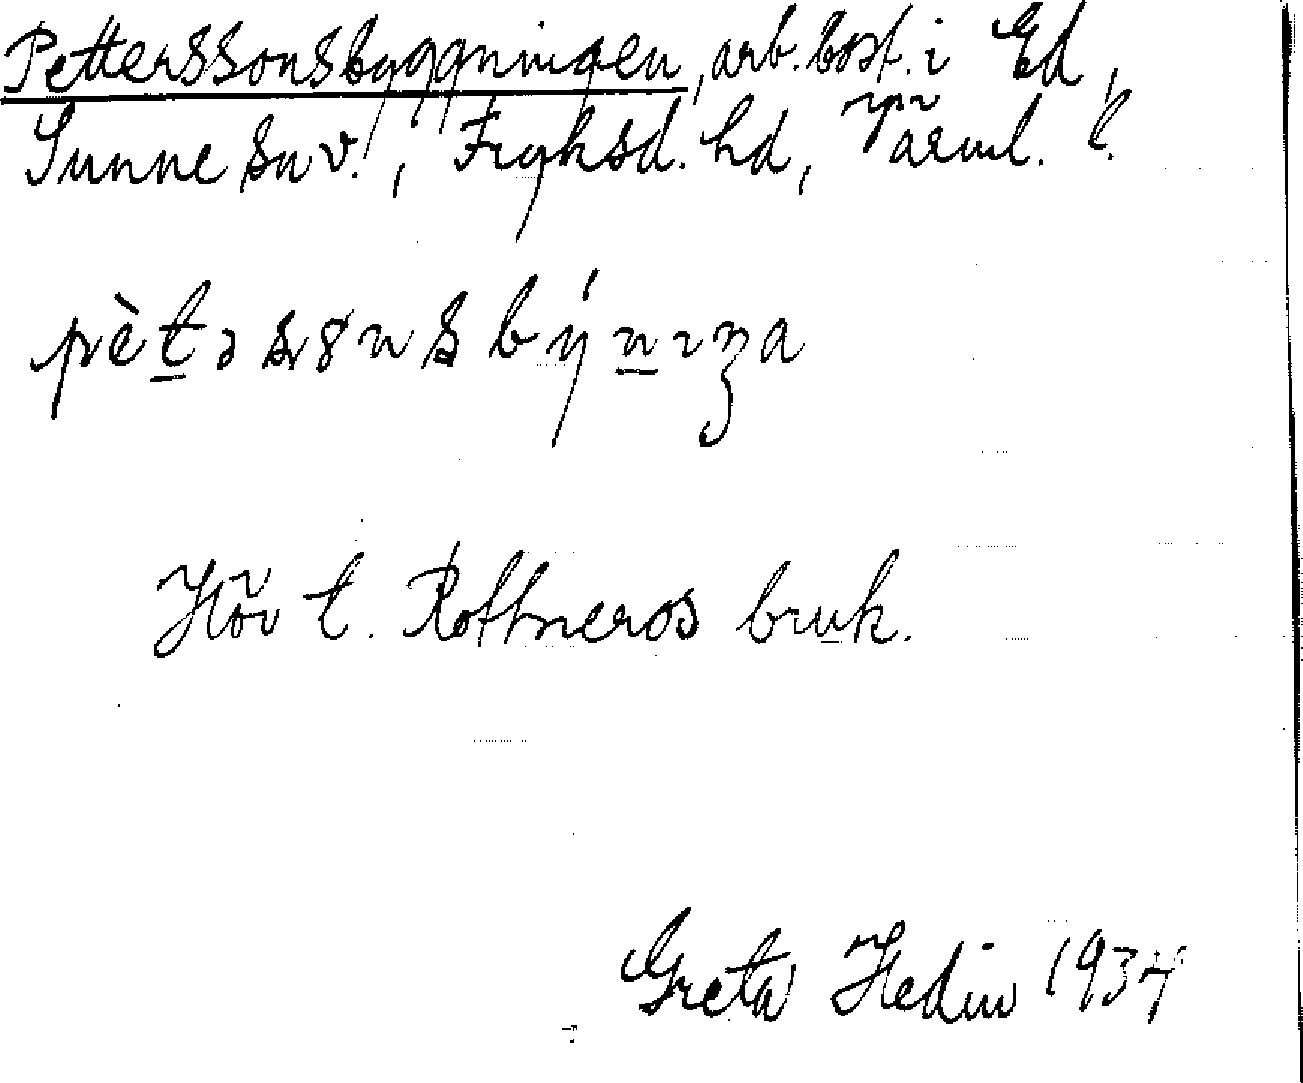 Petterssonsbyggningen, arb.bost. i Ed,
Sunne sn v., Fryksd. hd, Värml. l.
pèt̲əsɤnsbýn̲ıʒa
Hör t. Rottneros bruk.
Greta Hedin 1934